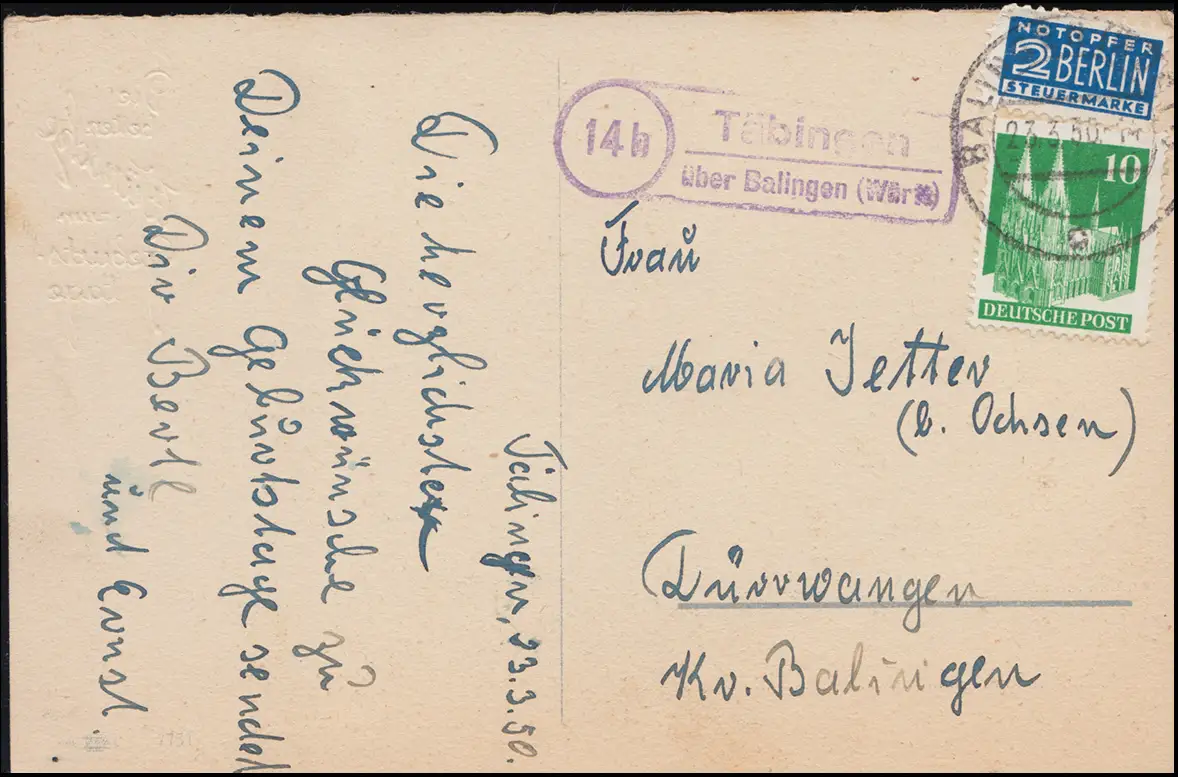 14b
Täbingen
über Balingen (Württ)
NOTOPFER
2 BERLIN
STEUERMARKE
23.3.50
10
DEUTSCHE POST
Frau
Maria Jetter
(b. Ochsen)
Dürrwangen
Kr. Balingen
Täbingen, 23.3.50.
Die herzlichsten
Glückwünsche zu
Deinem Geburtstage sendet
Dir Bertl
und Ernst.